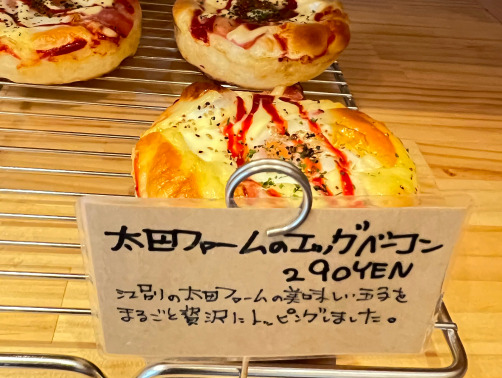 太田ファームのエッグベーコン
290YEN
江別の太田ファームの美味しい玉子を
まるごと贅沢にトッピングしました。